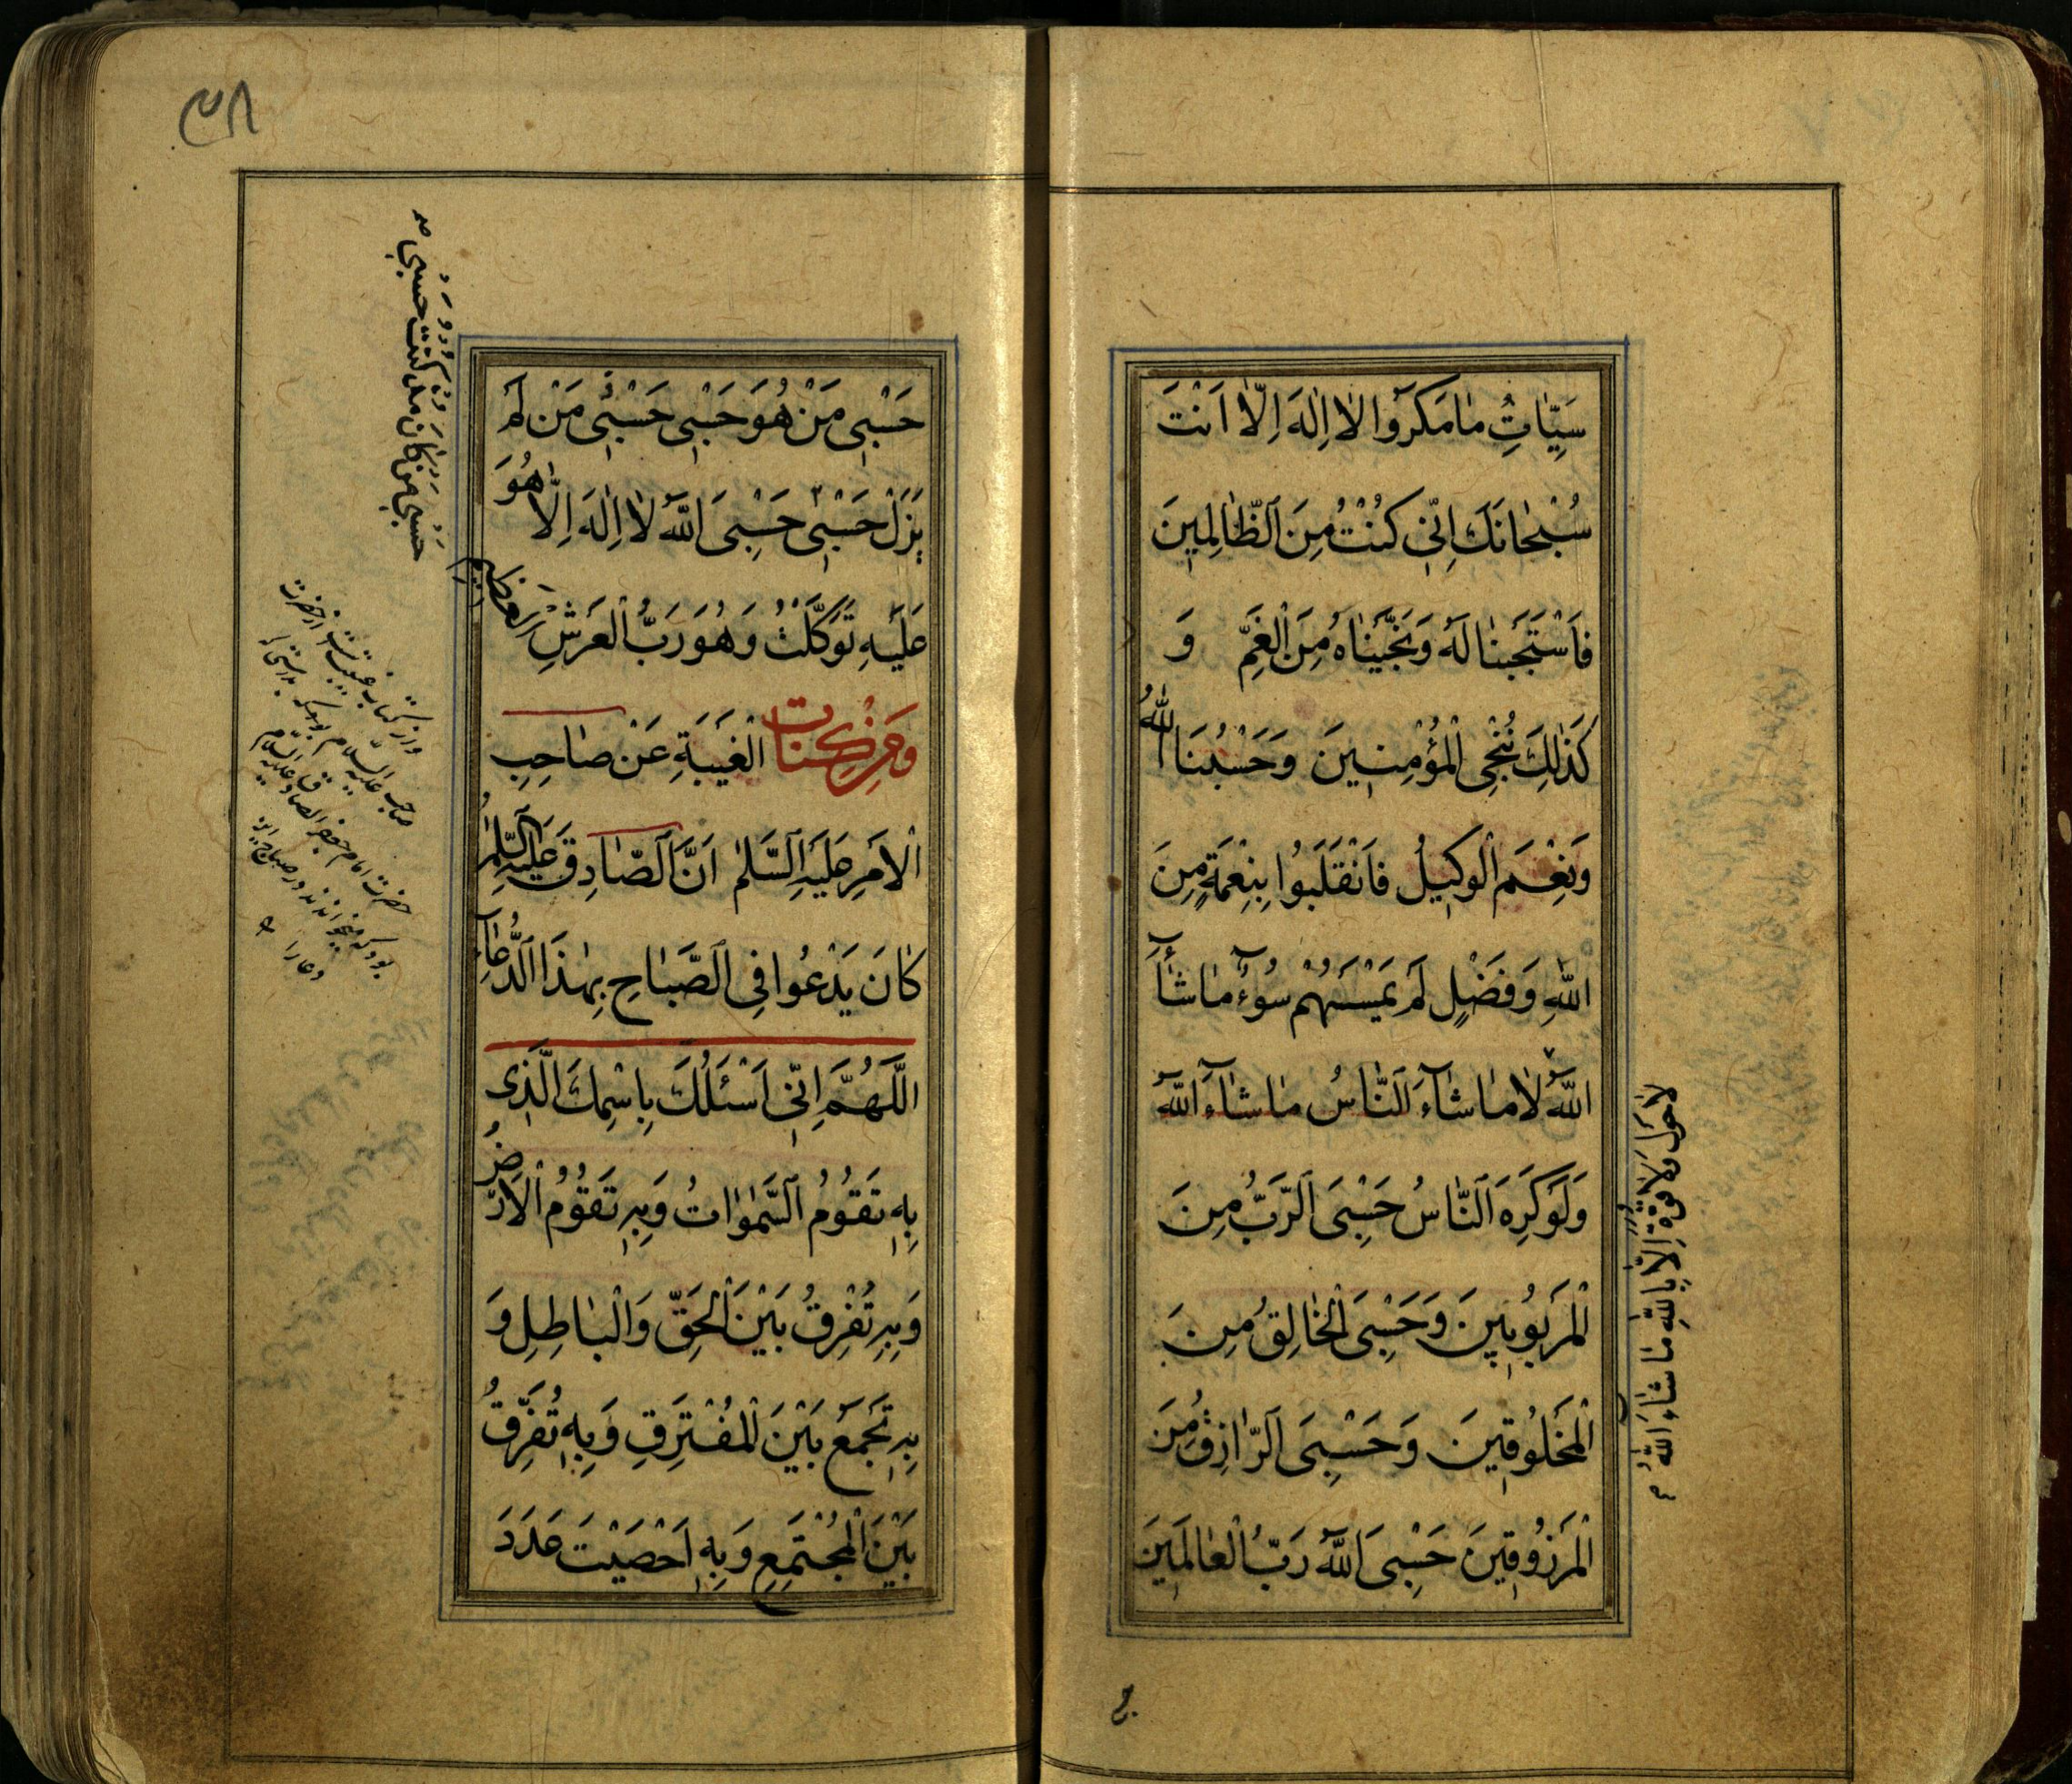 سَيِّاٰتِ مٰا مَكَرُوا لٰا اِلٰهَ اِلّٰا اَنْتَ
سُبْحٰانَكَ اِنّى كُنْتُ مِنَ الظّٰالِمينَ
فَاسْتَجَبْنٰا لَهُ وَنَجَّيْنٰاهُ مِنَ الْغَمِّ وَ
كَذٰلِكَ نُنْجِى الْمُؤْمِنينَ وَحَسْبُنَا اللّٰهُ
وَنِعْمَ الْوَكيلُ فَانْقَلَبُوا بِنِعْمَةٍ مِنَ
اللّٰهِ وَفَضْلٍ لَمْ يَمْسَسْهُمْ سُوۤءٌ مٰا شٰاۤءَ
اللّٰهُ لٰا مٰا شٰاۤءَ النّٰاسُ مٰا شٰاۤءَ اللّٰهُ
وَلَوْ كَرِهَ النّٰاسُ حَسْبِىَ الرَّبُّ مِنَ
الْمَرْبُوبينَ وَحَسْبِىَ الْخٰالِقُ مِنَ
الْمَخْلُوقينَ وَحَسْبِىَ الرّٰازِقُ مِنَ
الْمَرْزُوقينَ حَسْبِىَ اللّٰهُ رَبُّ الْعٰالَمينَ
لٰا حَوْلَ وَلٰا قُوَّةَ اِلّٰا بِاللّٰهِ مٰا شٰاءَ اللّٰهُ
٣٨
حَسْبى مَنْ هُوَ حَسْبى حَسْبى مَنْ لَمْ
يَزَلْ حَسْبى حَسْبِىَ اللّٰهُ لٰا اِلٰهَ اِلّٰا هُوَ
عَلَيْهِ تَوَكَّلْتُ وَهُوَ رَبُّ الْعَرْشِ الْعَظيمِ
وَمِنْ كِتٰابِ الْغَيْبَةِ عَنْ صٰاحِبِ
الْاَمْرِ عَلَيْهِ السَّلٰم اَنَّ الصّٰادِقَ عَلَيْهِ السَّلٰمُ
كٰانَ يَدْعُوا فِى الصَّبٰاحِ بِهٰذَا الدُّعٰاۤءِ
اَللّٰهُمَّ اِنّى اَسْئَلُكَ بِاسْمِكَ الَّذى
بِهِ تَقُومُ السَّمٰوٰاتُ وَبِهِ تَقُومُ الْاَرْضُ
وَبِهِ تُفْرِقُ بَيْنَ الْحَقِّ وَالْبٰاطِلِ وَ
بِهِ تَجْمَعُ بَيْنَ الْمُفْتَرِقِ وَبِهِ تُفَرِّقُ
بَيْنَ الْمُجْتَمِعِ وَبِهِ اَحْصَيْتَ عَدَدَ
حَسْبى مَنْ كٰانَ مُذْ كُنْتُ حَسْبى
واز كتاب غيبت است از حضرت
صاحب عليه السلام
حضرت امام جعفر الصادق عليه السلام
بود كه ميخواندند در صباح اين
دعا را